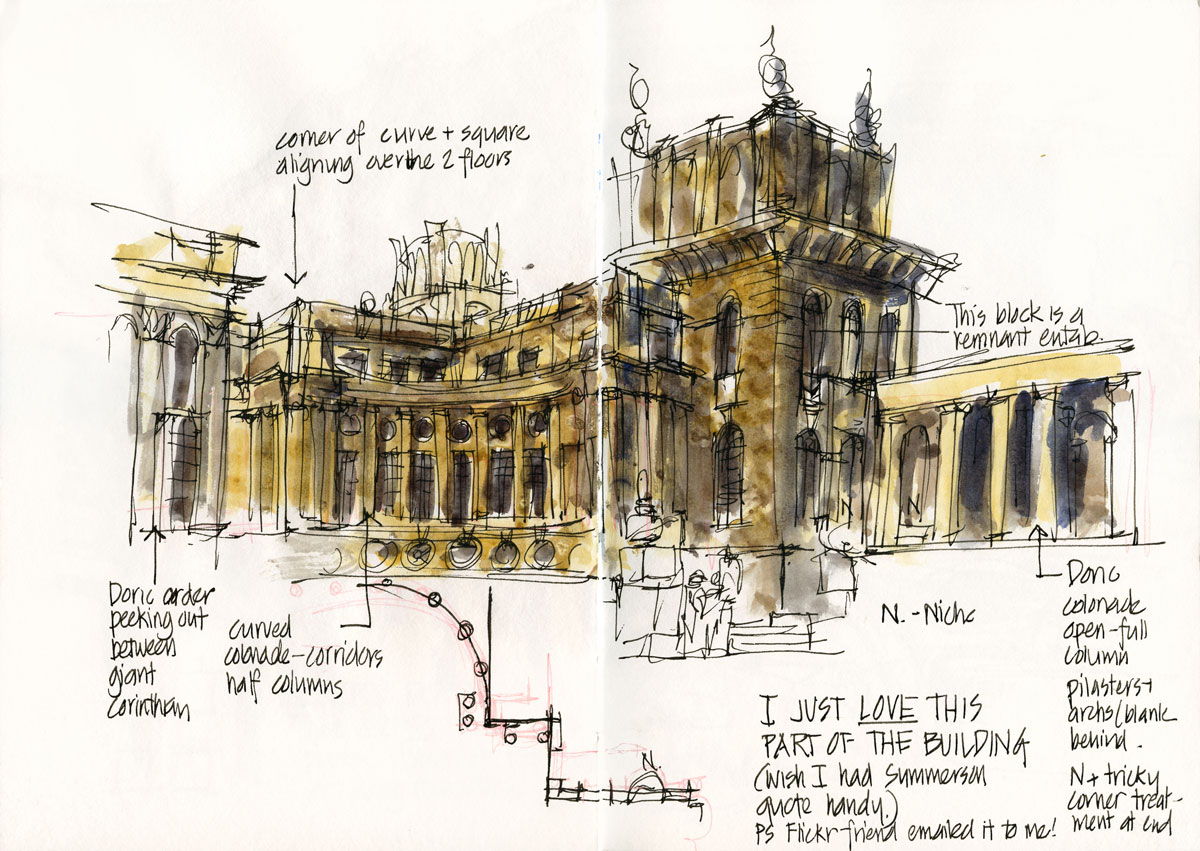 corner of curve + square
aligning over the 2 floors
This block is a
remnant entab.
Doric order
peeking out
between
giant
corinthian
curved
colonade-corridors
half columns
N
N
N. - Niche
N.
Doric
colonade
open-full
column
pilasters +
archs/blank
behind.
N + tricky
corner treat-
ment at end
I JUST LOVE THIS
PART OF THE BUILDING
(wish I had Summerson
quote handy.)
PS Flickr-friend emailed it to me!